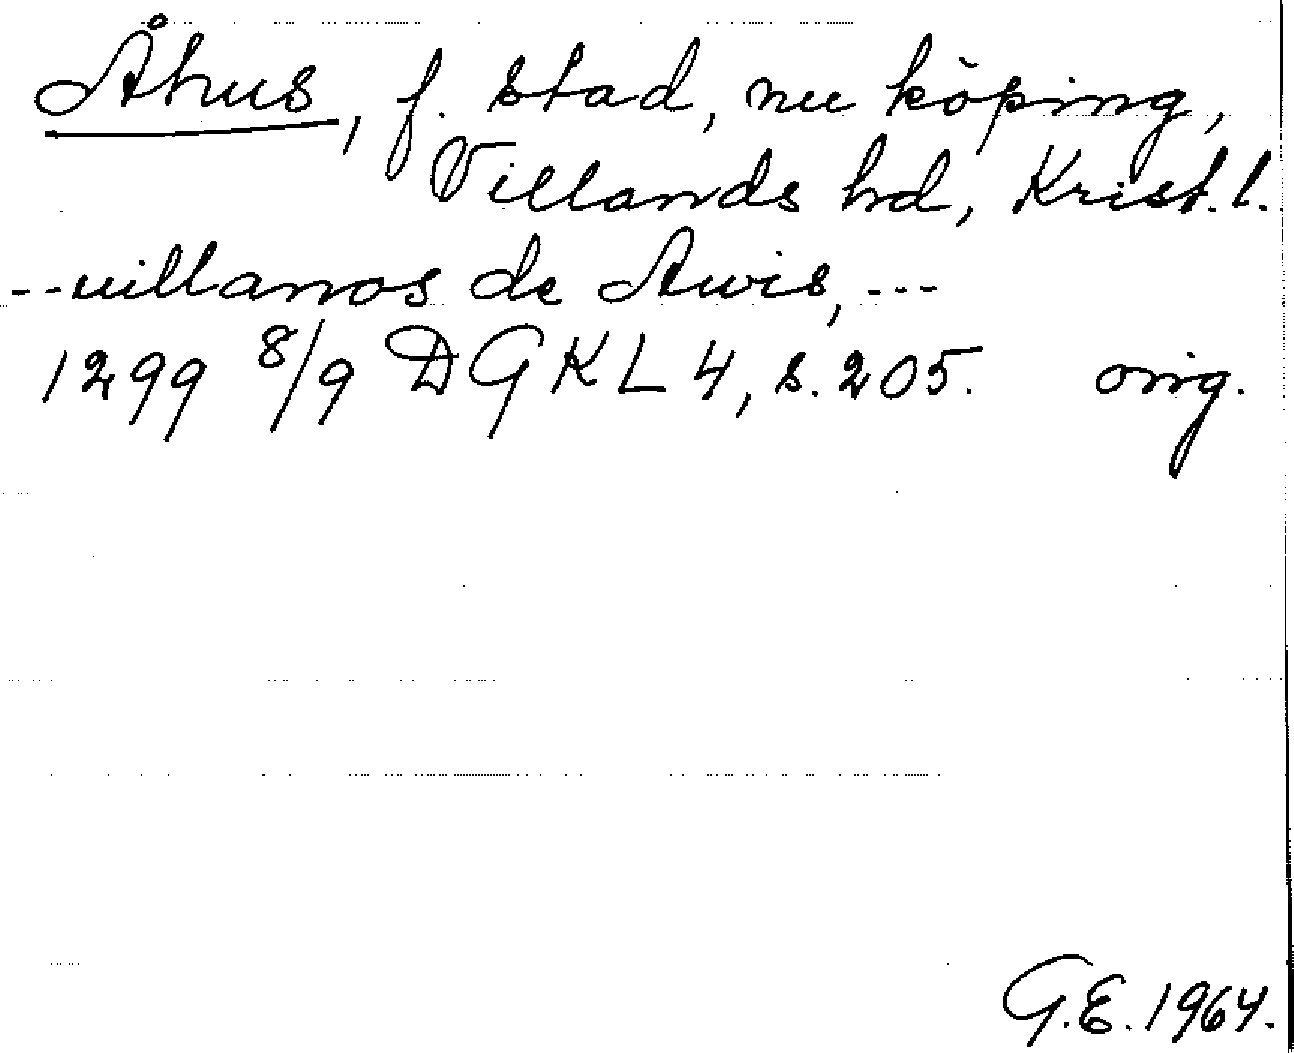 Åhus, f. stad, nu köping,
Villands hd, Krist. l.
--villanos de Awis, ---
1299 8/9 DGKL 4, s. 205. orig.
G.E. 1964.